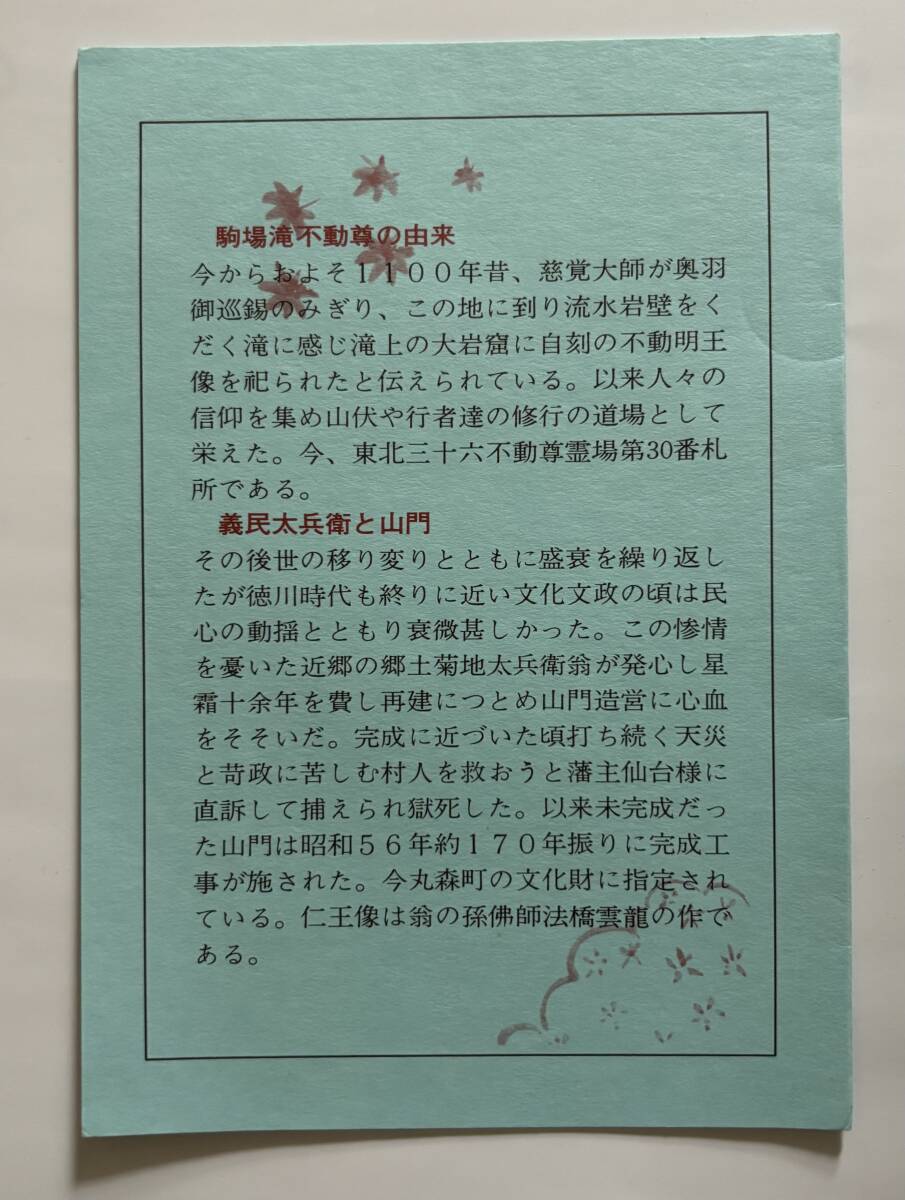 駒場滝不動尊の由来
今からおよそ１１００年昔、慈覚大師が奥羽
御巡錫のみぎり、この地に到り流水岩壁をく
だく滝に感じ滝上の大岩窟に自刻の不動明王
像を祀られたと伝えられている。以来人々の
信仰を集め山伏や行者達の修行の道場として
栄えた。今、東北三十六不動尊霊場第30番札
所である。
義民太兵衛と山門
その後世の移り変りとともに盛衰を繰り返し
たが徳川時代も終りに近い文化文政の頃は民
心の動揺とともり衰微甚しかった。この惨情
を憂いた近郷の郷士菊地太兵衛翁が発心し星
霜十余年を費し再建につとめ山門造営に心血
をそそいだ。完成に近づいた頃打ち続く天災
と苛政に苦しむ村人を救おうと藩主仙台様に
直訴して捕えられ獄死した。以来未完成だっ
た山門は昭和５６年約１７０年振りに完成工
事が施された。今丸森町の文化財に指定され
ている。仁王像は翁の孫佛師法橋雲龍の作で
ある。